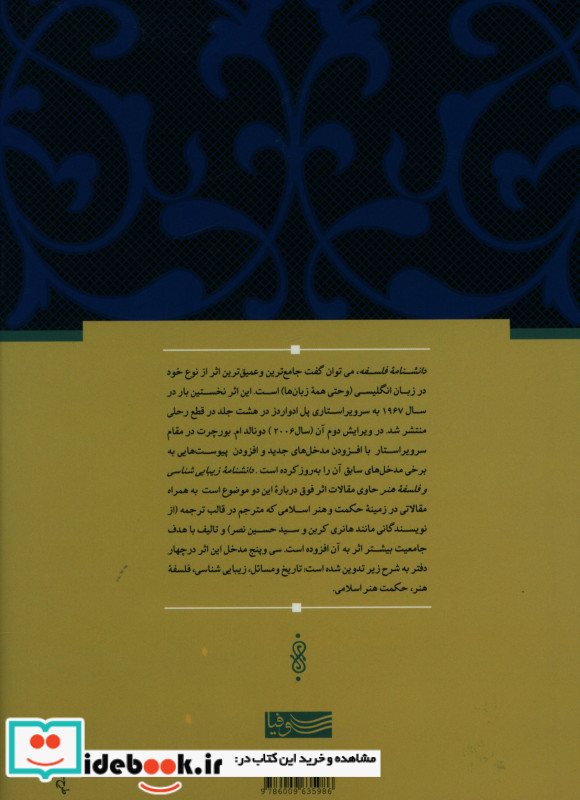 دانشنامهٔ فلسفه، می توان گفت جامع‌ترین وعمیق‌ترین اثر از نوع خود
در زبان انگلیسی (وحتی همهٔ زبان‌ها) است. این اثر نخستین بار در
سال ۱۹۶۷ به سرویراستاری پل ادواردز در هشت جلد در قطع رحلی
منتشر شد. در ویرایش دوم آن (سال۲۰۰۶) دونالد ام. بورچرت در مقام
سرویراستار با افزودن مدخل‌های جدید و افزودن پیوست‌هایی به
برخی مدخل‌های سابق آن را به‌روزکرده است. دانشنامهٔ زیبایی شناسی
و فلسفهٔ هنر حاوی مقالات اثر فوق دربارهٔ این دو موضوع است به همراه
مقالاتی در زمینهٔ حکمت و هنر اسلامی که مترجم در قالب ترجمه (از
نویسندگانی مانند هانری کربن و سید حسین نصر) و تالیف با هدف
جامعیت بیشتر اثر به آن افزوده است. سی وپنج مدخل این اثر درچهار
دفتر به شرح زیر تدوین شده است: تاریخ ومسائل، زیبایی شناسی، فلسفهٔ
هنر، حکمت هنر اسلامی.
سوفیا
مشاهده و خرید این کتاب در:
idebook.ir
9 786009 635986